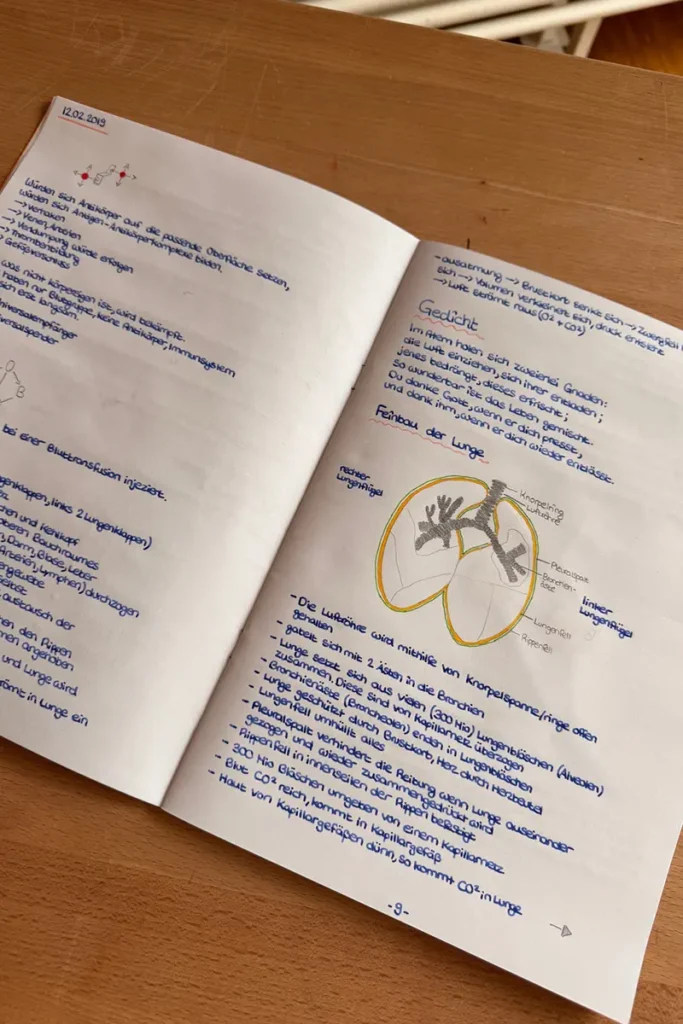 12.02.2019
Würden sich Antikörper auf die passende Oberfläche setzen,
würden sich Antigen-Antikörperkomplexe bilden.
→ verhaken
→ Venen, Arterien
→ Verklumpung würde erfolgen
→ Thrombenbildung
→ Gefäßverschluss
was nicht körpereigen ist, wird bekämpft.
haben nur Blutgruppe, keine Antikörper, Immunsystem
sich erst langsam.
niversalempfänger
versalspender
O
B
bei einer Bluttransfusion injeziert.
ngenklappen, links 2 Lungenklappen)
chen und Kehlkopf
oberen Bauchraumes
, Darm, Blase, Leber
Arterien, Lymphen) durchzogen
engewebe
austausch der
chen den Rippen
men angehoben
und Lunge wird
römt in Lunge ein
- ausatmung → Brustkorb senkt sich → Zwergfell
sich → Volumen verkleinert sich, druck entsteht
→ Luft strömt raus (O2 + CO2)
Gedicht
Im Atem holen sich zweierlei Gnaden:
die Luft einziehen, sich ihrer entladen;
jenes bedrängt, dieses erfrischt;
so wunderbar ist das Leben gemischt.
Du danke Gott, wenn er dich presst,
und dank ihm, wenn er dich wieder entlässt.
Feinbau der Lunge
rechter
Lungenflügel
Knorpelring
Luftröhre
Pleuralspalt
Bronchien-
äste
linker
Lungenflügel
Lungenfell
Rippenfell
- Die Luftröhre wird mithilfe von Knorpelspanne/ringe offen
gehalten
- gabelt sich mit 2 Ästen in die Bronchien
- Lunge setzt sich aus vielen (300 Mio) Lungenbläschen (Alveolen)
zusammen. Diese sind von Kapillarnetz überzogen
- Bronchienäste (Broncheolen) enden in Lungenbläschen
- Lunge geschützt durch Brustkorb, Herz durch Herzbeutel
- Lungenfell umhüllt alles
- Pleuralspalt verhindert die Reibung wenn Lunge auseinander
gezogen und wieder zusammengedrückt wird
- Rippenfell in innenseiten der Rippen befestigt
- 300 Mio Bläschen umgeben von einem Kapillarnetz
- Blut CO² reich, kommt in Kapillargefäß
- Haut von Kapillargefäßen dünn, so kommt CO² in Lunge
-9-
→